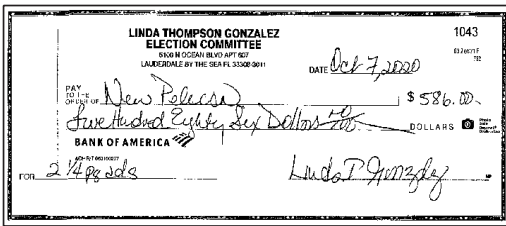 LINDA THOMPSON GONZALEZ
ELECTION COMMITTEE
5100 N OCEAN BLVD APT 607
LAUDERDALE BY THE SEA FL 33308-3011
1043
DATE Oct 7, 2020
PAY TO THE ORDER OF New Pelican $ 586.00
Five Hundred Eighty Six Dollars DOLLARS
BANK OF AMERICA
FOR 2 1/4 pg ads Linda T Gonzalez